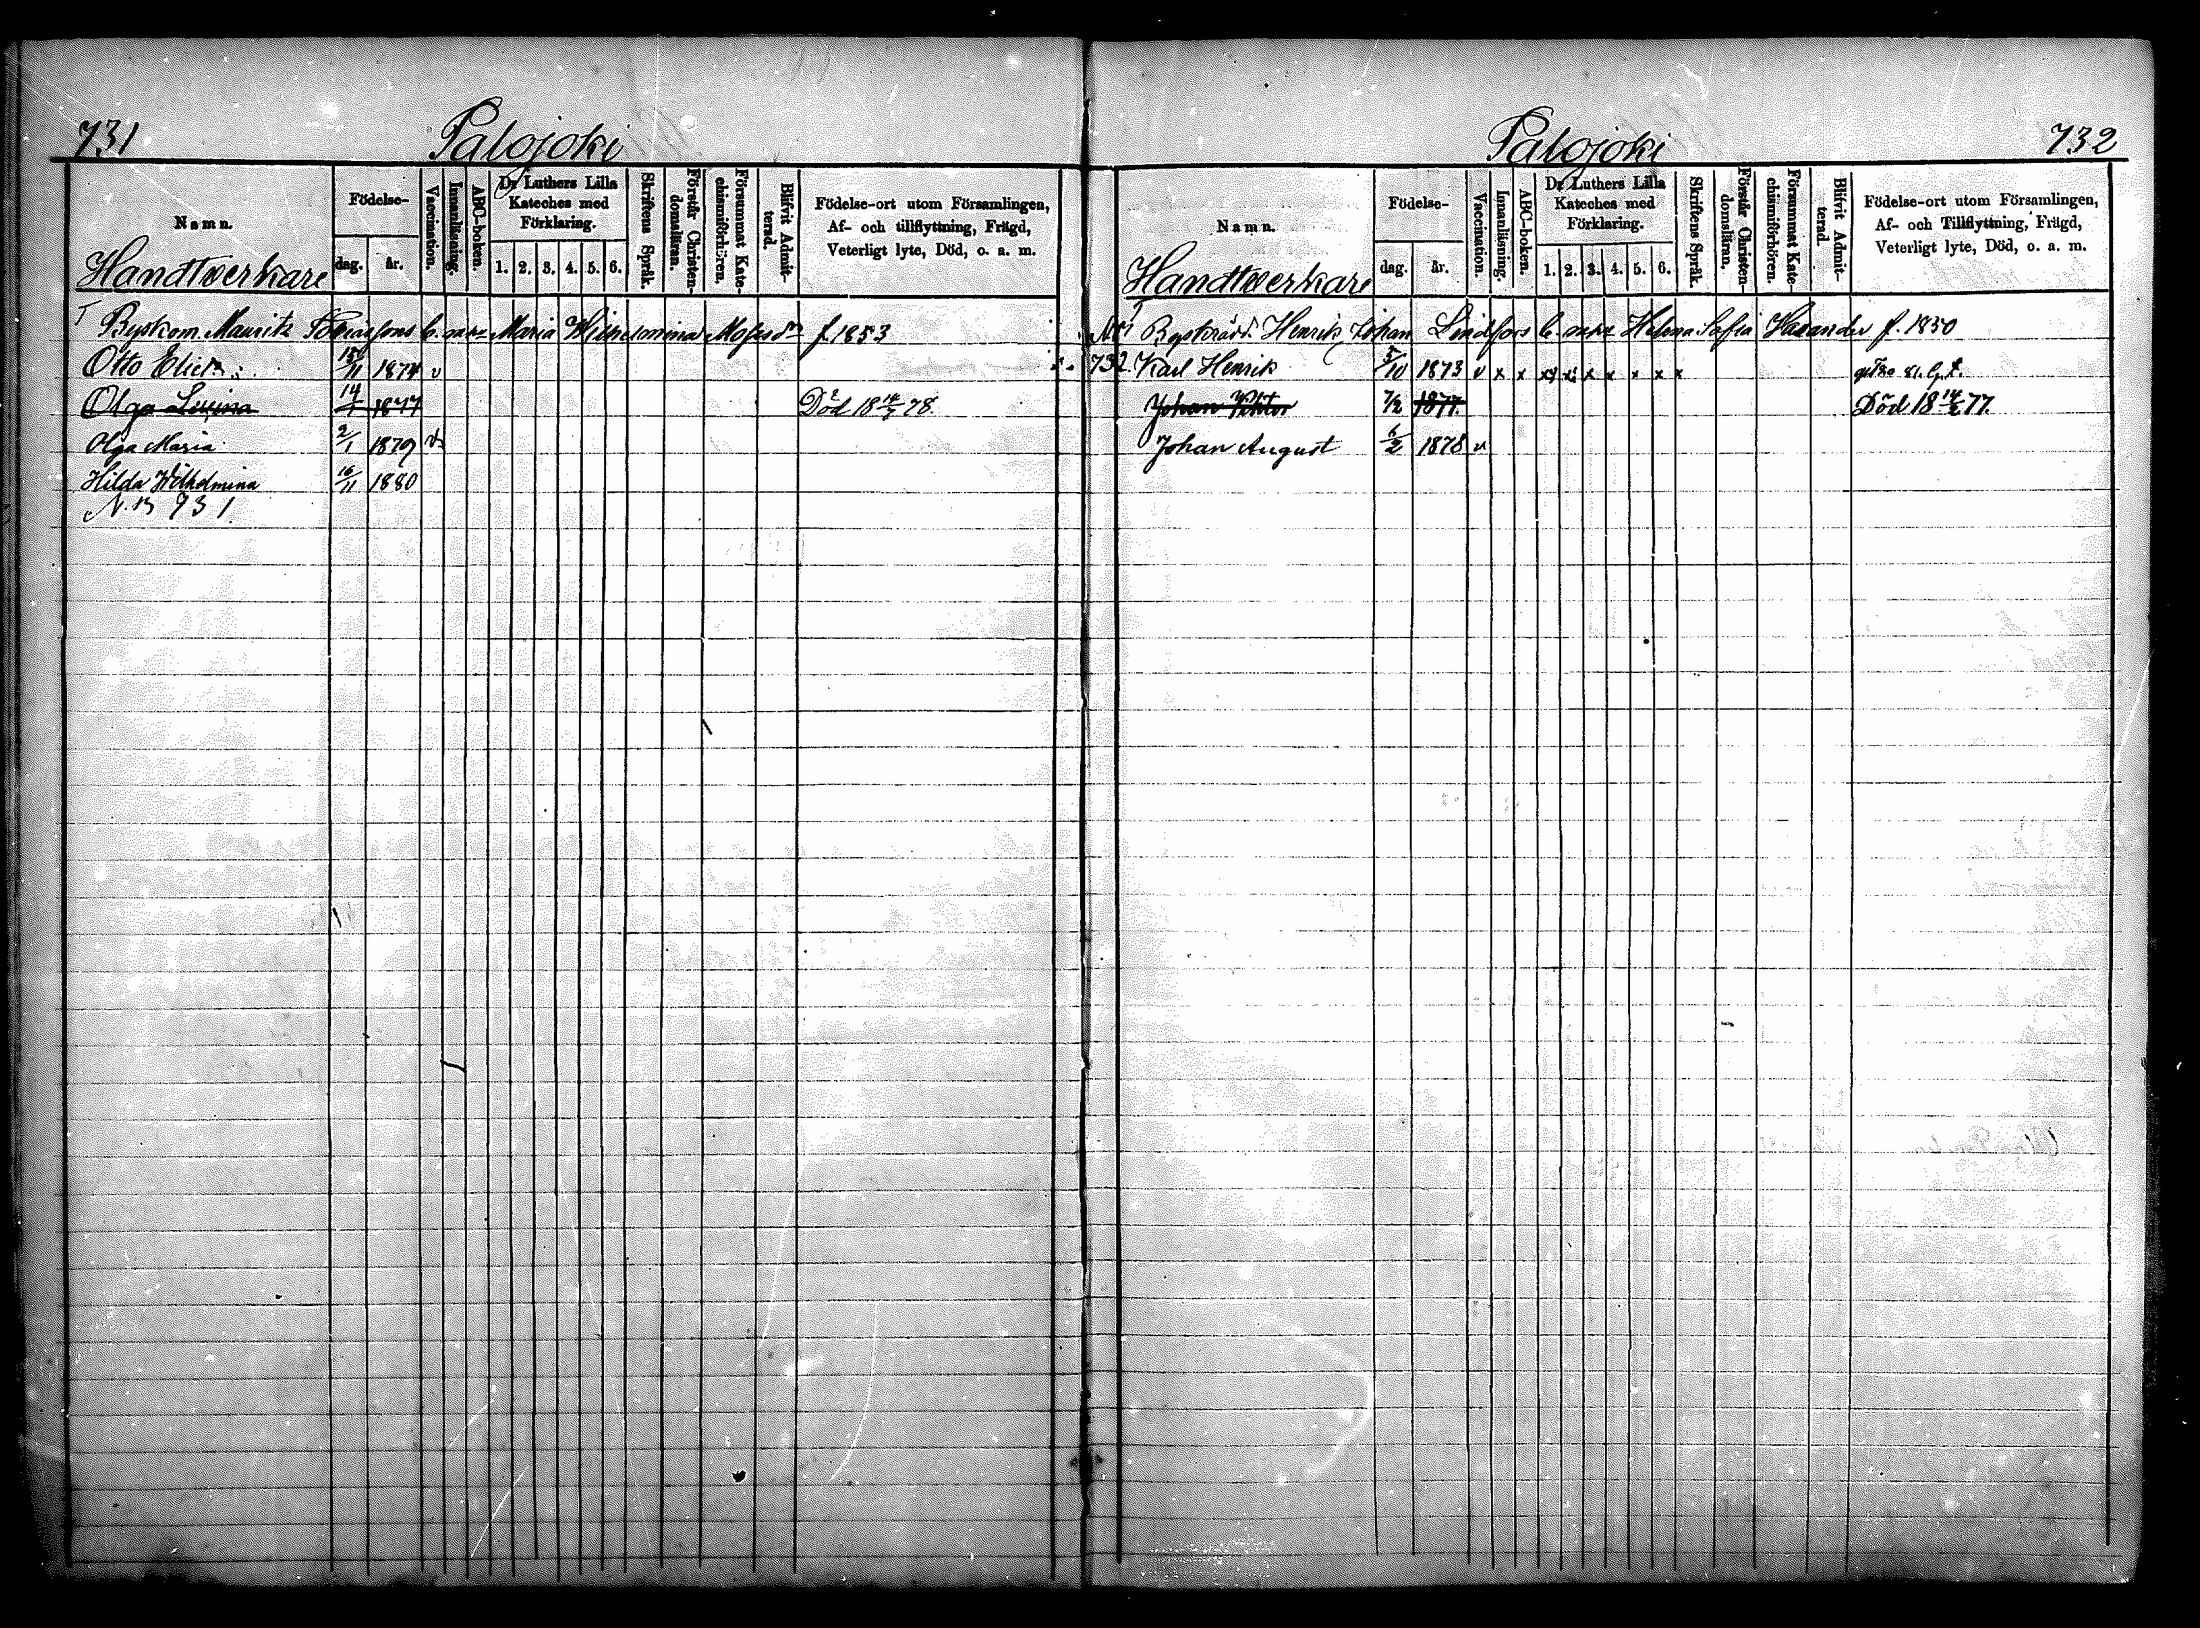 731
Palojoki
Namn.
Handtverkare
Födelse-
dag.
år.
Vaccination.
Innanläsning.
ABC-boken.
Dr Luthers Lilla
Kateches med
Förklaring.
1. 2. 3. 4. 5. 6.
Skriftens Språk.
Förstår Christen-
domsläran.
Försummat Kate-
chismiförhören.
Blifvit Admit-
terad.
Födelse-ort utom Församlingen,
Af- och tillflyttning, Frägd,
Veterligt lyte, Död, o. a. m.
Mauritz Maria Wilhelmina f. 1853
Otto 1874 v
Olga 14/1 1877 Död 18 78.
Olga Maria 2/1 1879 v
Hilda Wilhelmina 16/11 1880
N. B 731
Palojoki
732
Namn.
Handtverkare
Födelse-
dag.
år.
Vaccination.
Innanläsning.
ABC-boken.
Dr Luthers Lilla
Kateches med
Förklaring.
1. 2. 3. 4. 5. 6.
Skriftens Språk.
Förstår Christen-
domsläran.
Försummat Kate-
chismiförhören.
Blifvit Admit-
terad.
Födelse-ort utom Församlingen,
Af- och Tillflyttning, Frägd,
Veterligt lyte, Död, o. a. m.
Henrik Johan Lindfors Helena Sofia f. 1850
732 Karl Henrik 5/10 1873 v x x x x x x x x x
Johan Viktor 7/2 1877. Död 18 77.
Johan August 6/2 1878 v